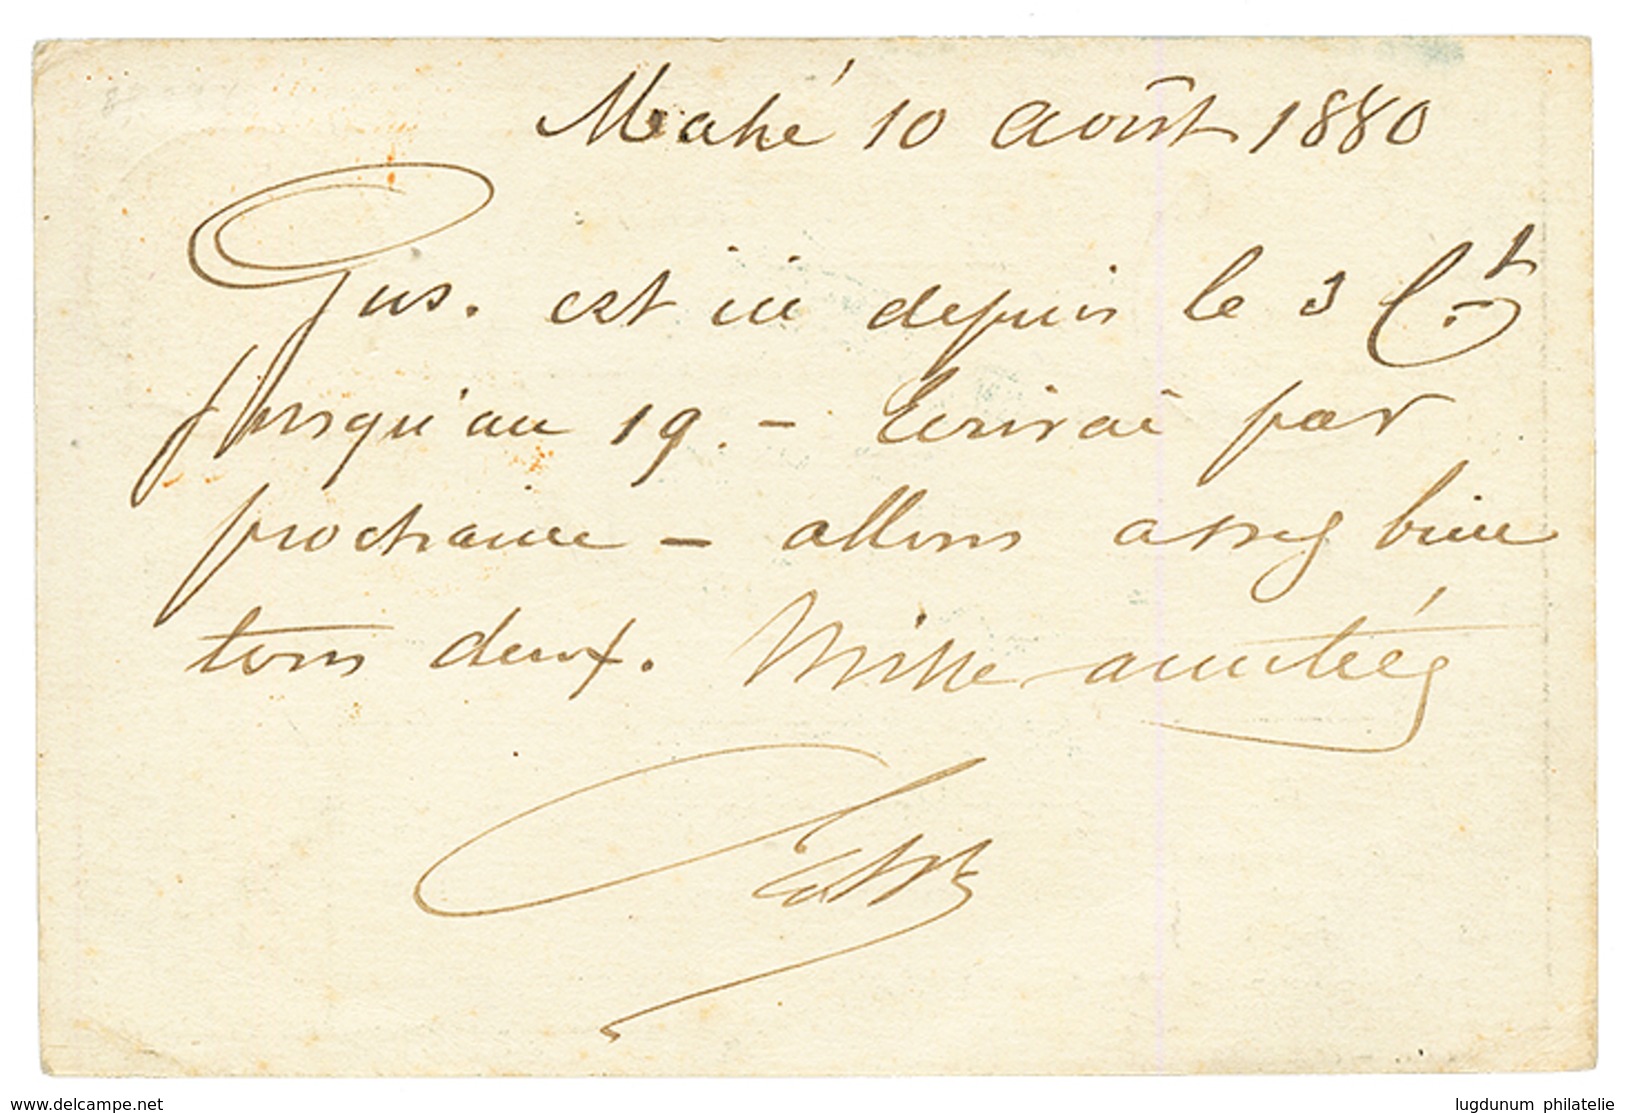 Mahé 10 août 1880
Gus. est ici depuis le 3 Ct
jusqu'au 19. - Écrirai par
prochaine - allons assez bien
tous deux. Mille amitiés
delcampe.net
lugdunum philatelie